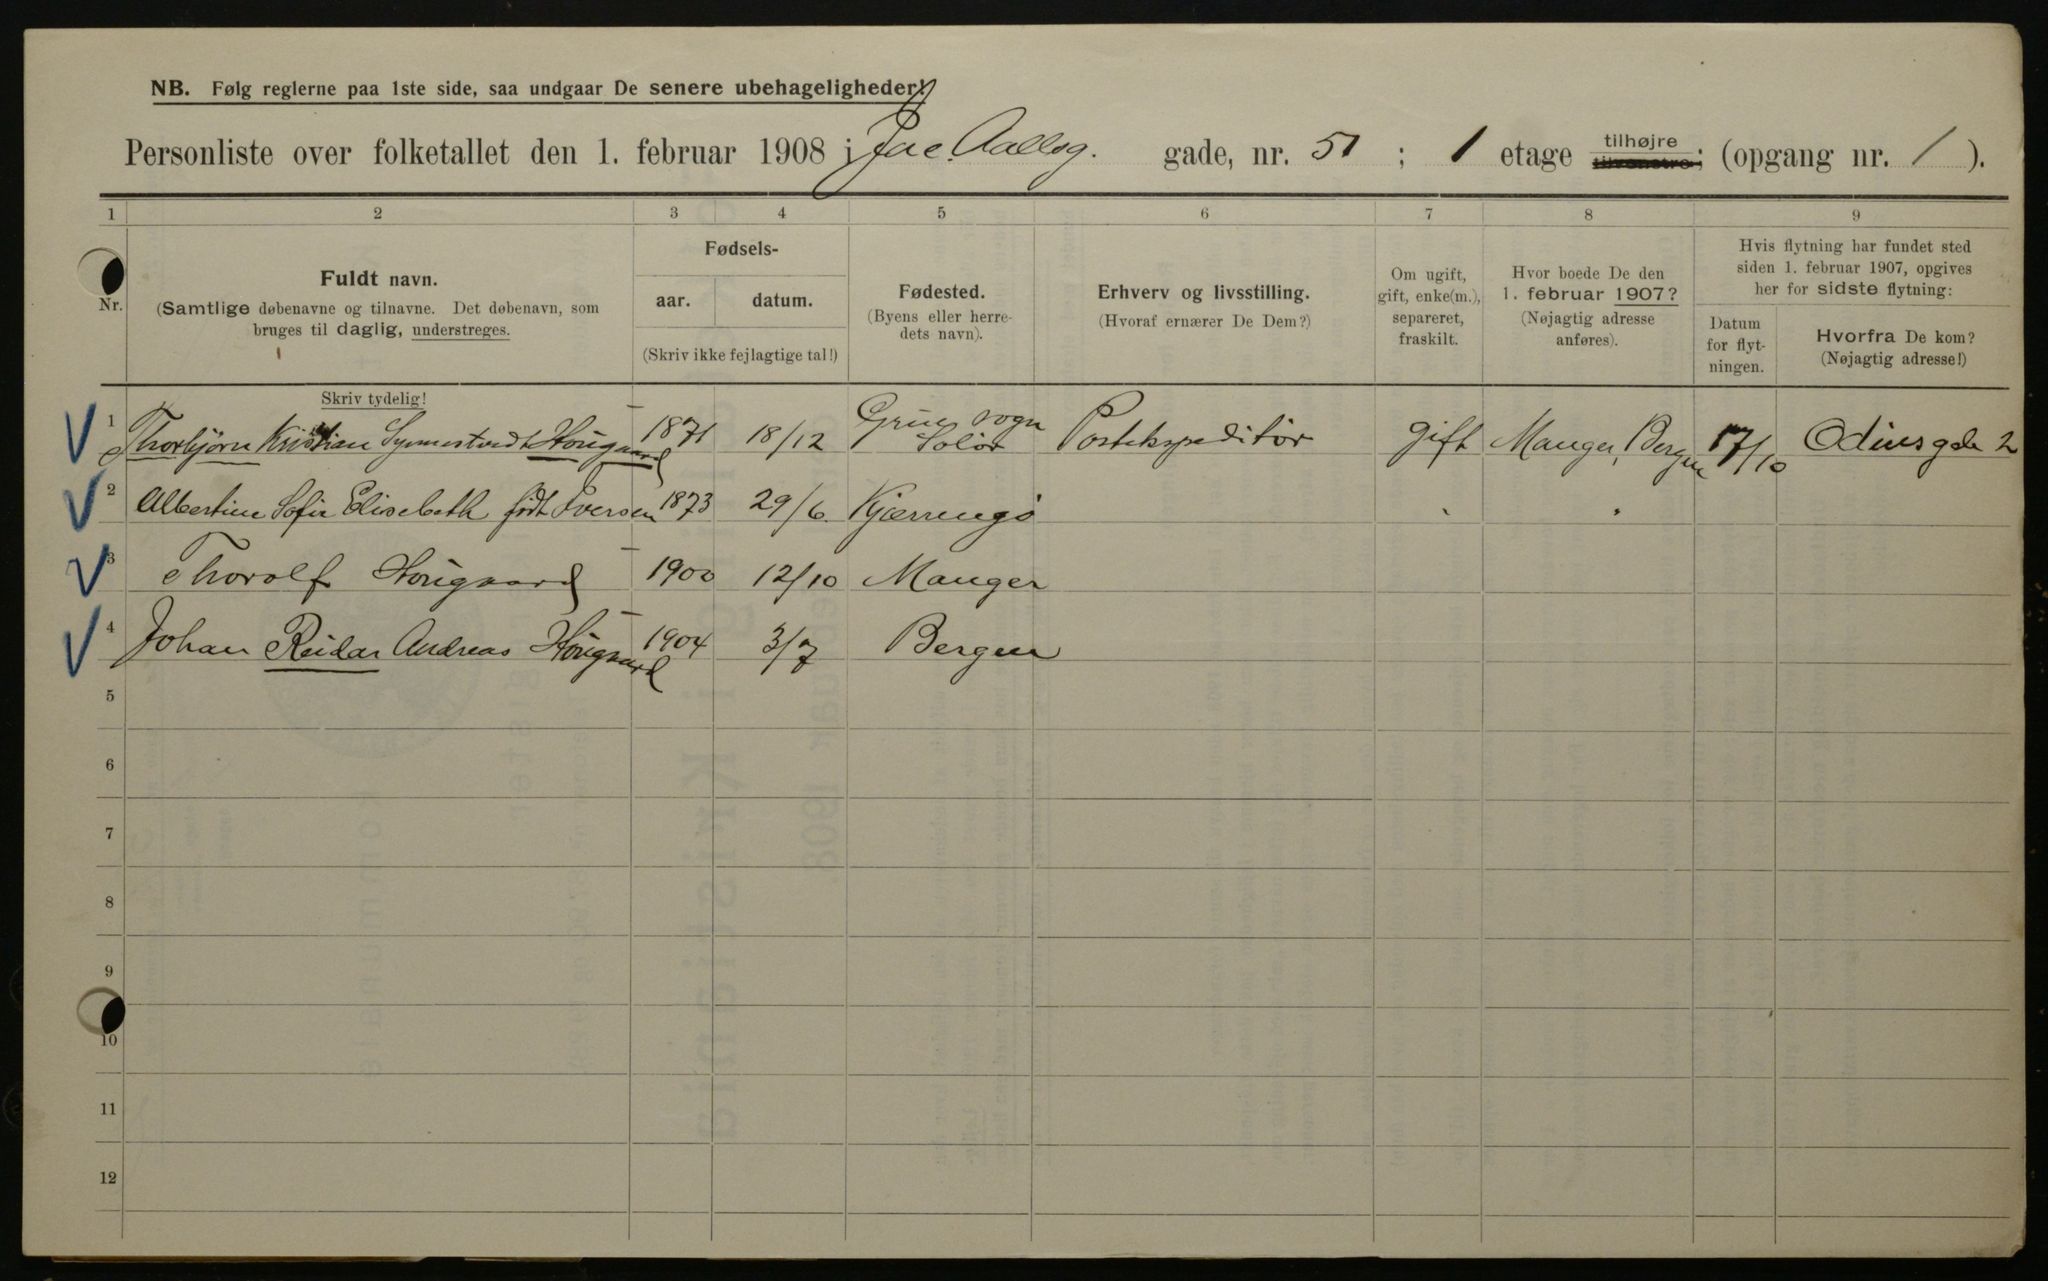 NB. Følg reglerne paa 1ste side, saa undgaar De senere ubehageligheder!
Personliste over folketallet den 1. februar 1908 i Jac. Aallsg. gade, nr. 51 ; 1 etage tilhøjre tilvenstre; (opgang nr. 1 ).
1 2 3 4 5 6 7 8 9
Nr.
Fuldt navn.
(Samtlige døbenavne og tilnavne. Det døbenavn, som
bruges til daglig, understreges.
Skriv tydelig!
Fødsels-
aar. datum.
(Skriv ikke fejlagtige tal!)
Fødested.
(Byens eller herre-
dets navn).
Erhverv og livsstilling.
(Hvoraf ernærer De Dem?)
Om ugift,
gift, enke(m.),
separeret,
fraskilt.
Hvor boede De den
1. februar 1907?
(Nøjagtig adresse
anføres).
Hvis flytning har fundet sted
siden 1. februar 1907, opgives
her for sidste flytning:
Datum
for flyt-
ningen.
Hvorfra De kom?
(Nøjagtig adresse!)
1 Thorbjörn Kristian Synnestvedt Hougaard 1871 18/12 Grue sogn Solör Postekspeditör gift Manger, Bergen 17/10 Odinsgade 2
2 Albertine Sofie Elisebeth födt Iversen 1873 29/6. Kjærringö " "
3 Thorolf Hougaard 1900 12/10 Manger
4 Johan Reidar Andreas Hougaard 1904 3/7 Bergen
5
6
7
8
9
10
11
12